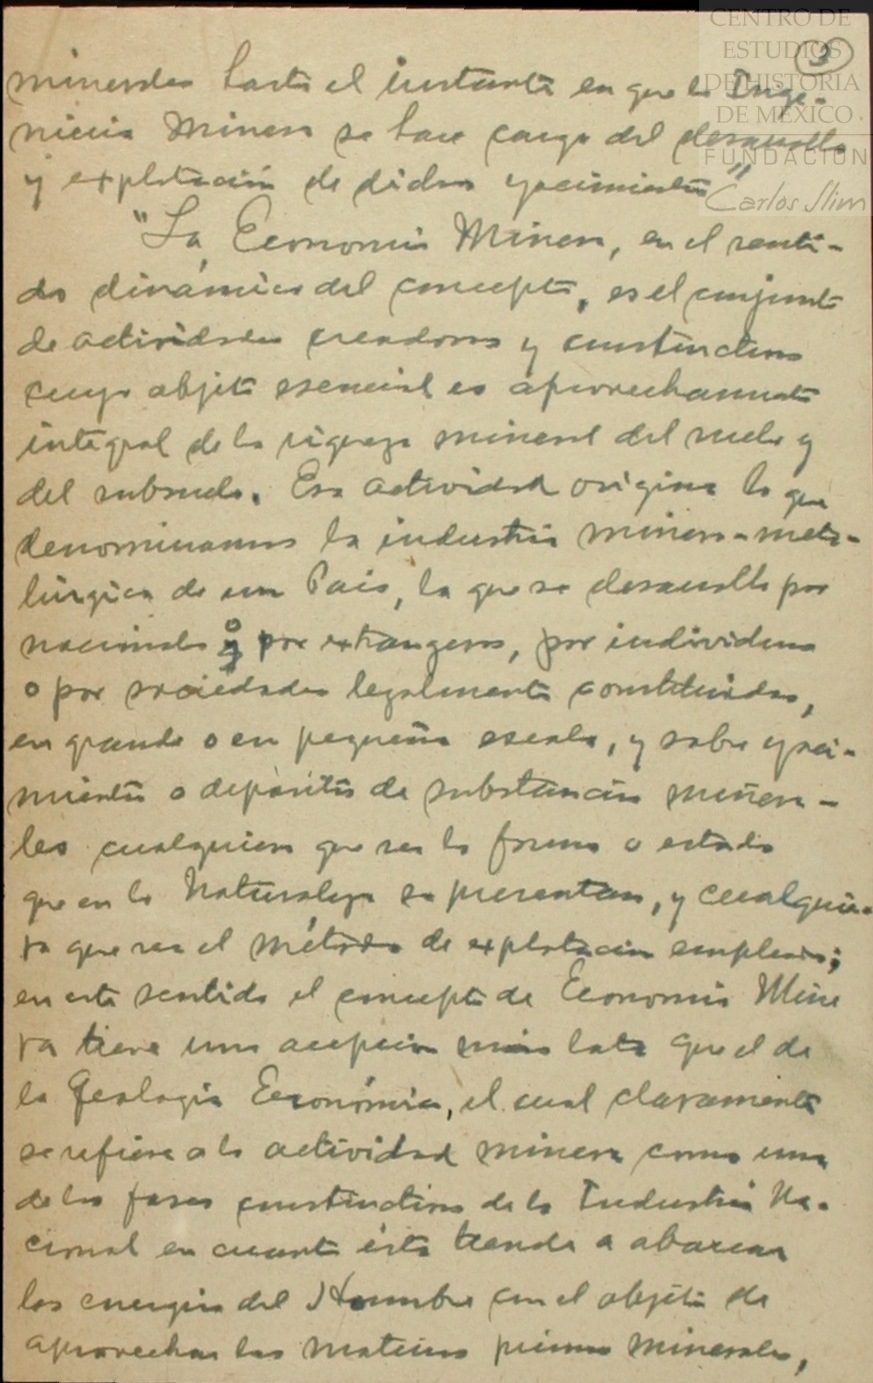 CENTRO DE
ESTUDIOS
DE HISTORIA
DE MÉXICO
FUNDACIÓN
Carlos Slim
3
minerales hasta el instante en que la Inge-
niería Minera se hace cargo del desarrollo
y explotación de dichos yacimientos"
"La Economía Minera, en el senti-
do dinámico del concepto, es el conjunto
de actividades creadoras y constructivas
cuyo objeto esencial es aprovechamiento
integral de la riqueza mineral del suelo y
del subsuelo. Esa actividad origina lo que
denominamos la industria minero-meta-
lúrgica de un País, la que se desarrolla por
nacionales o por extrangeros, por individuos
o por sociedades legalmente constituidas,
en grande o en pequeña escala, y sobre yaci-
mientos o depósitos de substancias minera-
les cualquiera que sea la forma o estado
que en la Naturaleza se presentan, y cualquie-
ra que sea el método de explotación empleado;
en este sentido el concepto de Economía Mine
ra tiene una acepción más lata que el de
la Geología Económica, el cual claramente
se refiere a la actividad minera como una
de las fases constructivas de la Industria Na-
cional en cuanto ésta tiende a abarcar
las energías del Hombre con el objeto de
aprovechar las materias primas minerales,